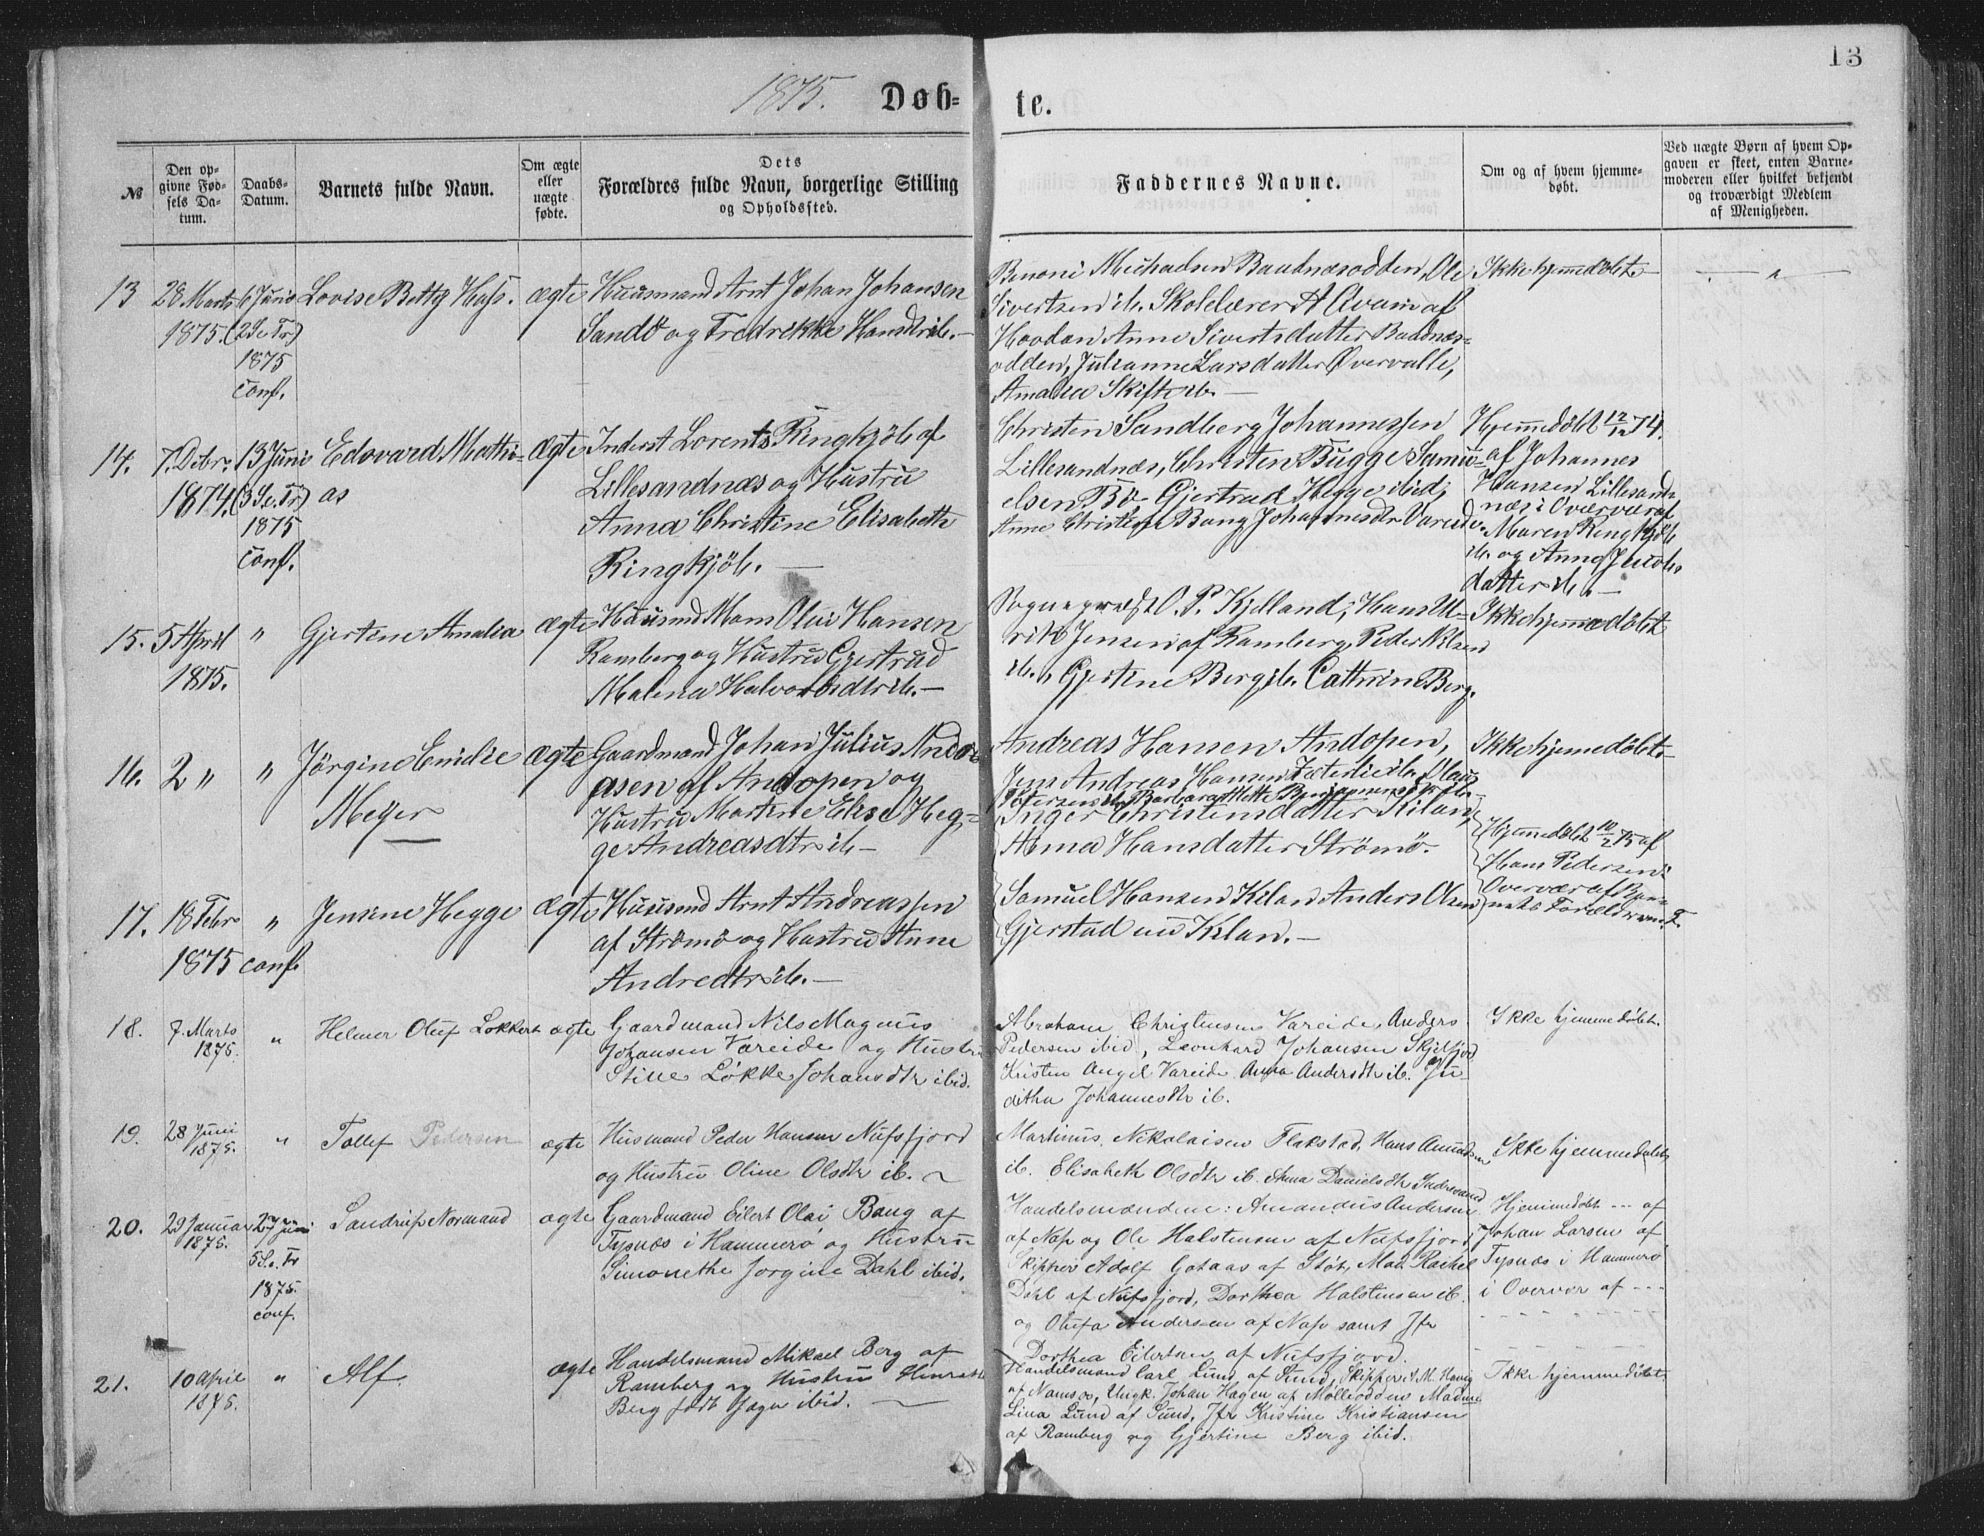 13
1875.
Døb-
te.
№
Den op-
givne Fød-
sels Da-
tum.
Daabs-
Datum.
Barnets fulde Navn.
Om ægte
eller
uægte
fødte.
Dets
Forældres fulde Navn, borgerlige Stilling
og Opholdssted.
Faddernes Navne.
Om og af hvem hjemme-
døbt.
Ved uægte Børn af hvem Op-
gaven er skeet, enten Barne-
moderen eller hvilket bekjendt
og troværdigt Medlem
af Menigheden.
13
28 Marts
1875.
6 Juni
(2 S. e. Tr.)
1875
conf.
Lovise Betty Hass.
ægte
Huusmand Arnt Johan Johansen
Sandt og Fredrikke Hansdtr ib.
Benoni Michaelsen Baudnæsodden, Ole
Sivertsen ib. Skolelærer A Qvam af
Hovdan Anne Sivertsdatter Baudnæs-
odden, Julianne Larsdatter Øvervalle,
Amalia Skift ib.
Ikke hjemmedøbt
14.
7. Debr.
1874.
13 Juni
(3 S. e. Tr.)
1875
conf.
Edevard Mathi-
as
Ægte
Inderst Lorents Ringkjøb af
Lillesandnæs og Hustru
Anna Christine Elisabeth
Ringkjøb.
Christen Sandberg Johannessen
Lillesandnæs, Christen Bugge Samu-
elsen Bø Gjertrud Hegge ibid;
Anne Christine Bang Johannesdtr Vareide.
Hjemmedøbt 12/12 74.
af Johannes
Hansen Lillesand-
næs i Overvær af
Maren Ringkjøb
ib. og Anne Jacobs
datter ib.
15.
5 April
1875.
"
Gjertine Amalia
ægte
Huusmd Mons Olai Hansen
Ramberg og Hustru Gjertrud
Malena Halvorsdtr ib.
Sognepræst O. P. Kjelland; Hans Ul-
rik Jensen af Ramberg, Peder Olsen
ib., Gjertine Berg ib. Cathrine Berg.
Ikke hjemmedøbt
16.
2 "
"
Jørgine Emilie
Meyer
ægte
Gaardmand Johan Julius Andre-
asen af Andopen og
Hustru Martine Elise Heg-
ge Andreasdtr ib
Andreas Hansen Andopen,
Jens Andreas Hansen ib. Olaus
Petersen ib. Barbara Mette Benjaminsdtr ib.
Inger Christensdatter Kilan,
Anna Hansdatter Strømø.
Ikke hjemmedøbt
17.
18 Febr
1875
"
conf.
Jensine Hegge
ægte
Huusmd Arnt Andreassen
af Strømø og Hustru Anne
Andredtr ib.
Samuel Hansen Kilan Anders Olsen
Gjerstad nu Kilan.
Hjemmedøbt 10/2 75 af
Hans Pedersen i
Overvær af Bar-
nets Forældre m. F.
18.
7. Marts
1875.
"
Helmer Oluf Lokkert
ægte
Gaardmand Nils Magnus
Johansen Vareide og Hustru
Stine Løkke Johansdtr ibid.
Abraham Christensen Vareide, Anders
Pedersen ibid, Leonhard Johansen Skjelfjord
Kristen Angel Vareide Anna Andersdtr ib. Ju-
ditha Johannesdtr ib.
Ikke hjemmedøbt.
19.
28 Juni
1875.
"
Tollef Pedersen
ægte
Husmand Peder Hansen Nufsfjord
og Hustru Oline Olsdtr ib.
Martinus Nikolaisen Flakstad, Hans Amundsen
ib. Elisabeth Olsdtr ib. Anna Danielsdtr Indresand
Ikke hjemmedøbt
20.
29 Januar
1875.
27 Juni
5 S. e. Tr
1875.
conf.
Sandrup Normand
ægte
Gaardmand Eilert Olai Bang af
Tysnæs i Hammerø og Hustru
Simonethe Jorgine Dahl ibid.
Handelsmændene: Amandus Andersen
af Nap og Ole Halstensen af Nufsfjord,
Skipper Adolf Gotaas af Støt, Mad. Rachel
Dahl af Nufsfjord, Dorthea Halstensen ib.
og Olufa Andersen af Nap samt Jfr
Dorthea Eilertsen af Nufsfjord.
Hjemmedøbt --- af
Johan Larsen af
Tysnæs i Hammerø
i Overvær af ---
21.
10 April
1875.
"
Alf.
ægte
Handelsmand Mikael Berg af
Ramberg og Hustru
Berg født ibid.
Handelsmand Carl Lund af Sund, Skipper A. M. Havig
af Namsos, Ungk. Johan Hagen af Molleodden Madme
Lina Lund af Sund, Jfr Kristine Kristiansen
af Ramberg og Gjertine Berg ibid.
Ikke hjemmedøbt